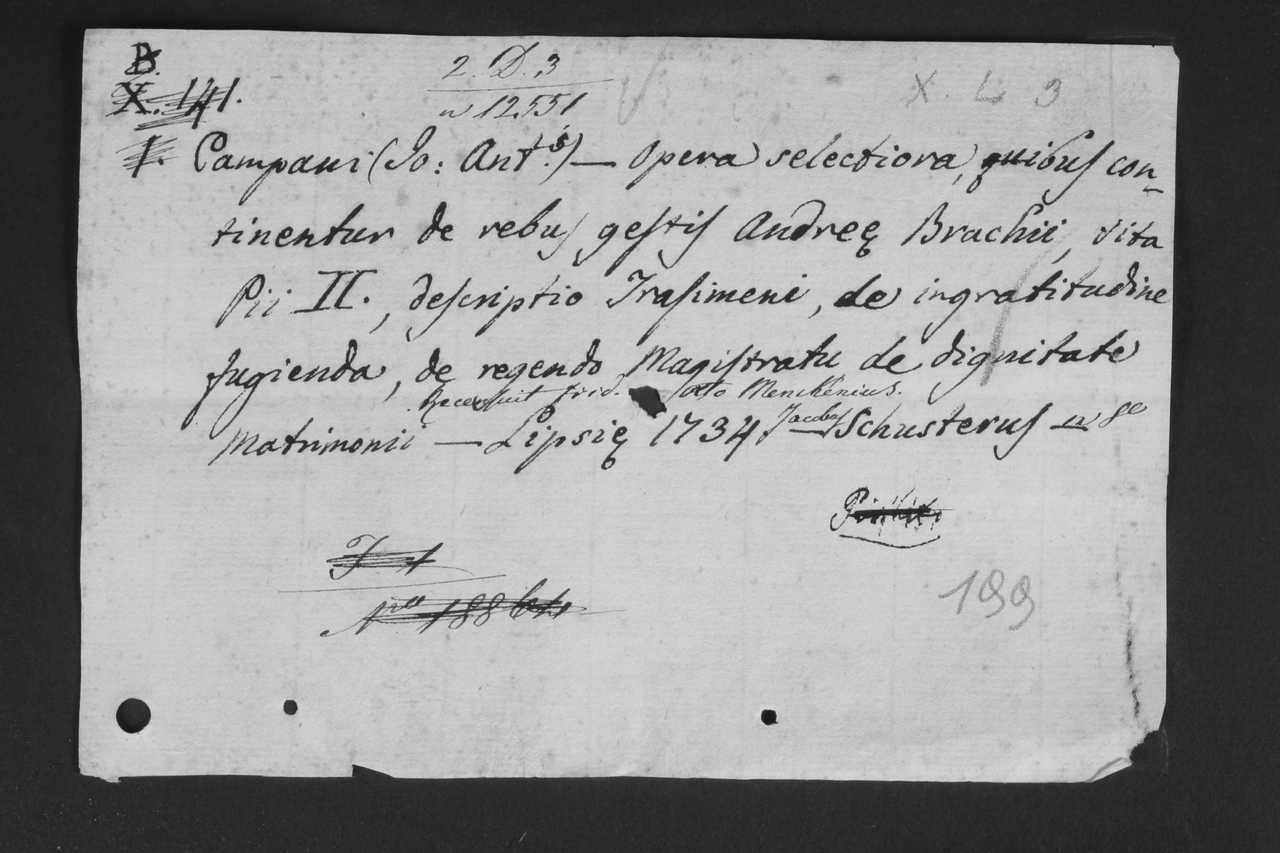 B.
X. 141.
2. D. 3
n 12551
X. L 3
1. Campani (Jo: Ant.s) — Opera selectiora, quibus con-
tinentur de rebus gestis Andreę Brachii, vita
Pii II., descriptio Trasimeni, de ingratitudine
fugienda, de regendo Magistratu de dignitate
Recensuit Frid. Otto Menckenius.
Matrimonii — Lipsię 1734. Jacobus Schusterus in 8o
199